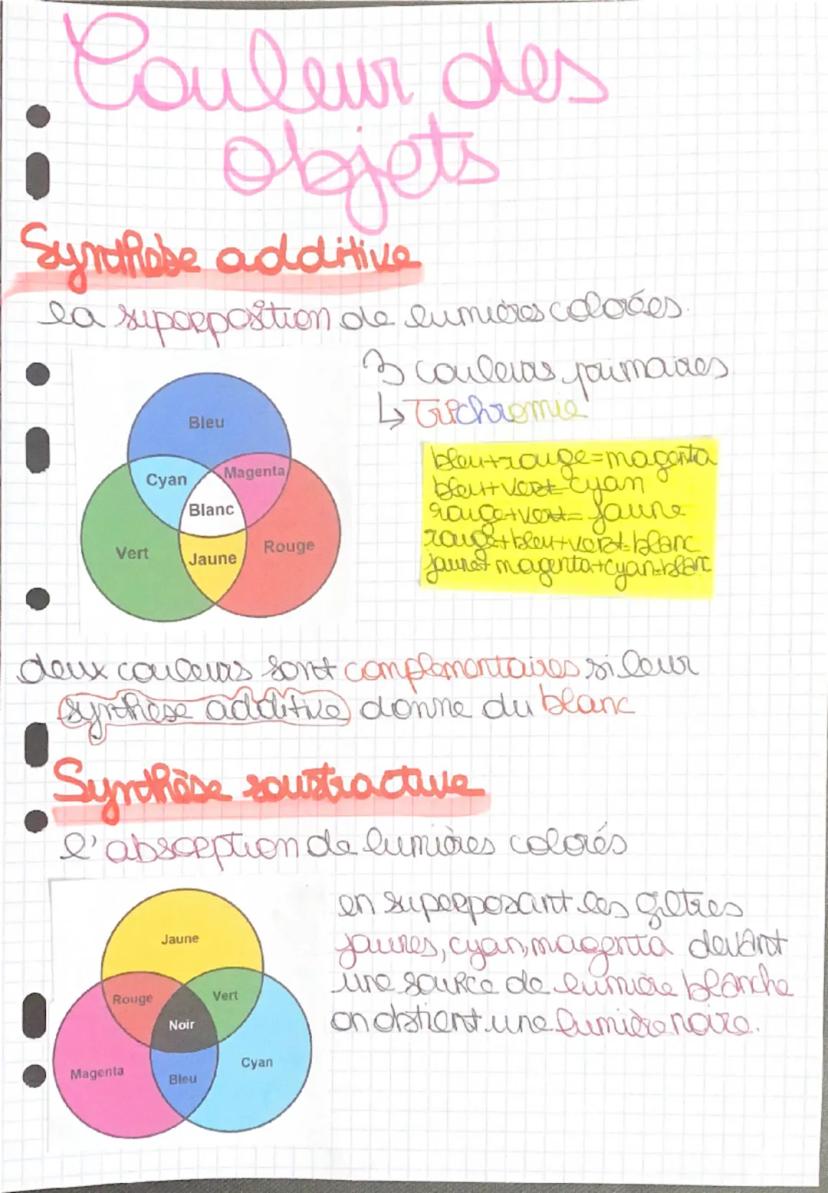 Couleur des
objets
Synthèse additive
la superposition de lumières colorées.
3 couleurs primaires
↳ Trichromie
Bleu
Cyan
Magenta
Blanc
Vert
Jaune
Rouge
bleu+rouge=magenta
bleu+vert=cyan
rouge+vert=jaune
rouge+bleu+vert=blanc
jaune+magenta+cyan=blanc
deux couleurs sont complémentaires si leur
synthèse additive donne du blanc
Synthèse soustractive
l'absorption de lumières colorés
Jaune
Rouge
Vert
Noir
Magenta
Bleu
Cyan
en superposant les filtres
jaunes, cyan, magenta devant
une source de lumière blanche
on obtient une lumière noire.